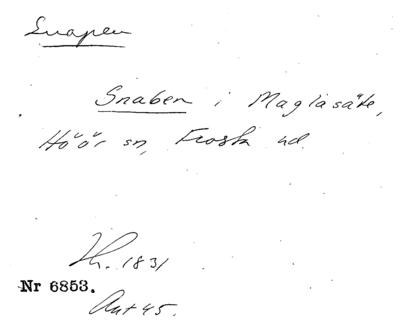 Snapen
Snaben i Maglasäte,
Höör sn, Frosta hd.
Kr. 1831
Nr 6853.
Ant 45.